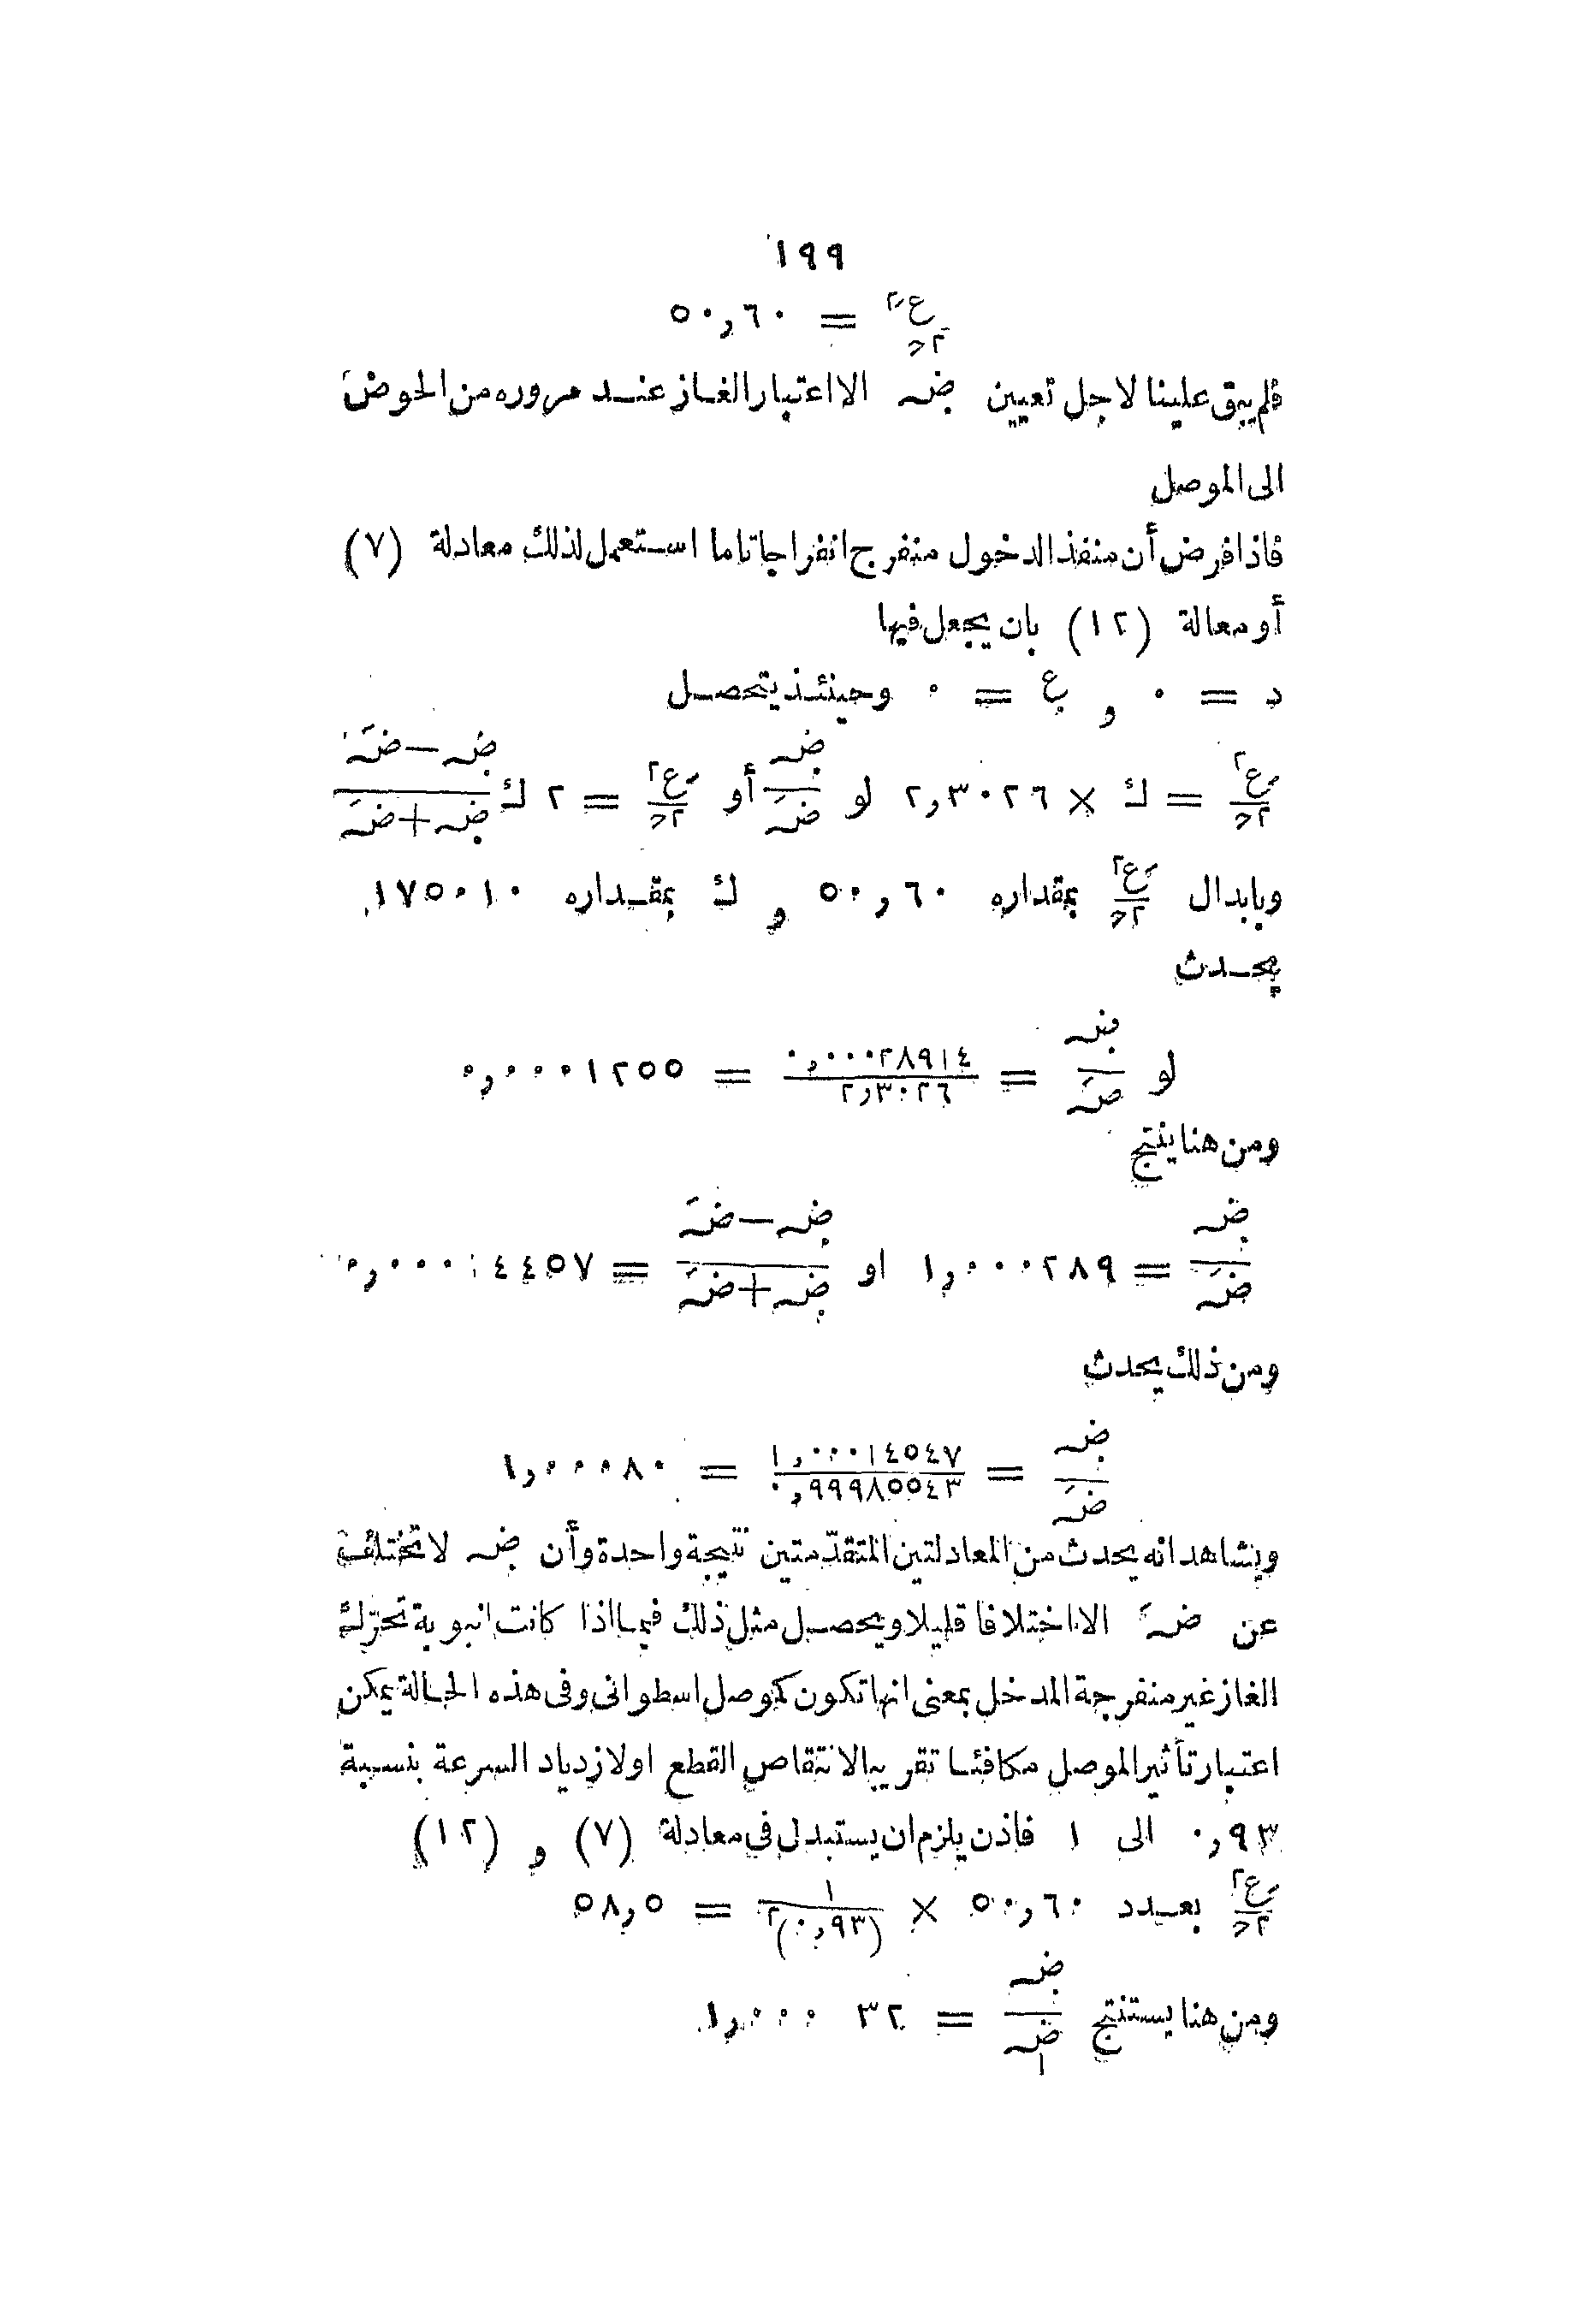 ١٩٩
ع٢/٢ح = ٥٠,٦٠
فلم يبق علينا لاجل تعيين ضہ الا اعتبار الغاز عند مروره من الحوض
الى الموصل
فاذا فرض أن منفذ الدخول منفرج انفراجا تاما استعمل لذلك معادلة (٧)
أو معالة (١٢) بان يجعل فيها
د = ٠ و ع = ٠ وحينئذ يتحصل
ع٢/٢ح = ك × ٢,٣٠٢٦ لو ضہ/ضَہ أو ع٢/٢ح = ٢ ك (ضہ − ضَہ)/(ضہ + ضَہ)
وبابدال ع٢/٢ح بمقداره ٥٠,٦٠ و ك بمقداره ١٧٥٠١٠
يحدث
لو ضہ/ضَہ = ٠,٠٠٠٢٨٩١٤/٢,٣٠٢٦ = ٠,٠٠٠١٢٥٥
ومن هنا ينتج
ضہ/ضَہ = ١,٠٠٠٢٨٩ او (ضہ − ضَہ)/(ضہ + ضَہ) = ٠,٠٠٠١٤٤٥٧
ومن ذلك يحدث
ضہ/ضَہ = ١,٠٠٠١٤٥٤٧/٠,٩٩٩٨٥٥٤٣ = ١,٠٠٠٨٠
ويشاهد انه يحدث من المعادلتين المتقدّمتين نتيجة واحدة وأن ضہ لا تختلف
عن ضَہ الا اختلافا قليلا ويحصل مثل ذلك فيما اذا كانت انبوبة تحرّك
الغاز غير منفرجة المدخل بمعنى انها تكون كموصل اسطوانى وفى هذه الحالة يمكن
اعتبار تأثير الموصل مكافئا تقريبا لانتقاص القطع او لازدياد السرعة بنسبة
٠,٩٣ الى ١ فاذن يلزم ان يستبدل فى معادلة (٧) و (١٢)
ع٢/٢ح بعدد ٥٠,٦٠ × ١/(٠,٩٣)٢ = ٥٨,٥
ومن هنا يستنتج ضہ/ضہ١ = ١,٠٠٠٣٢